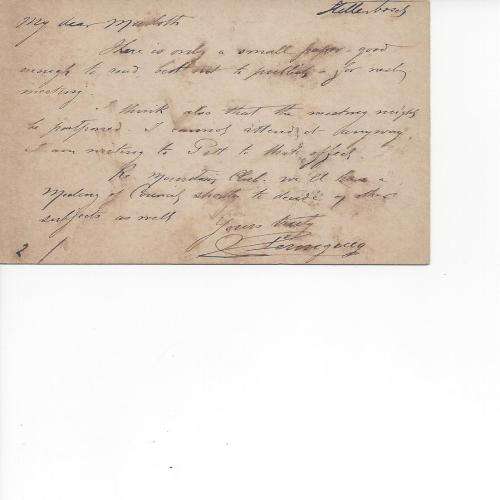 Stellenbosch
My dear Marloth
There is only a small paper good
enough to read but not to publish for next
meeting.
I think also that the meeting might
be postponed. I cannot attend it anyway.
I am writing to to that effect.
Re Mountain Club. We'll have a
Meeting of Council shortly to decide of other
subjects as well
Yours truly
2 /